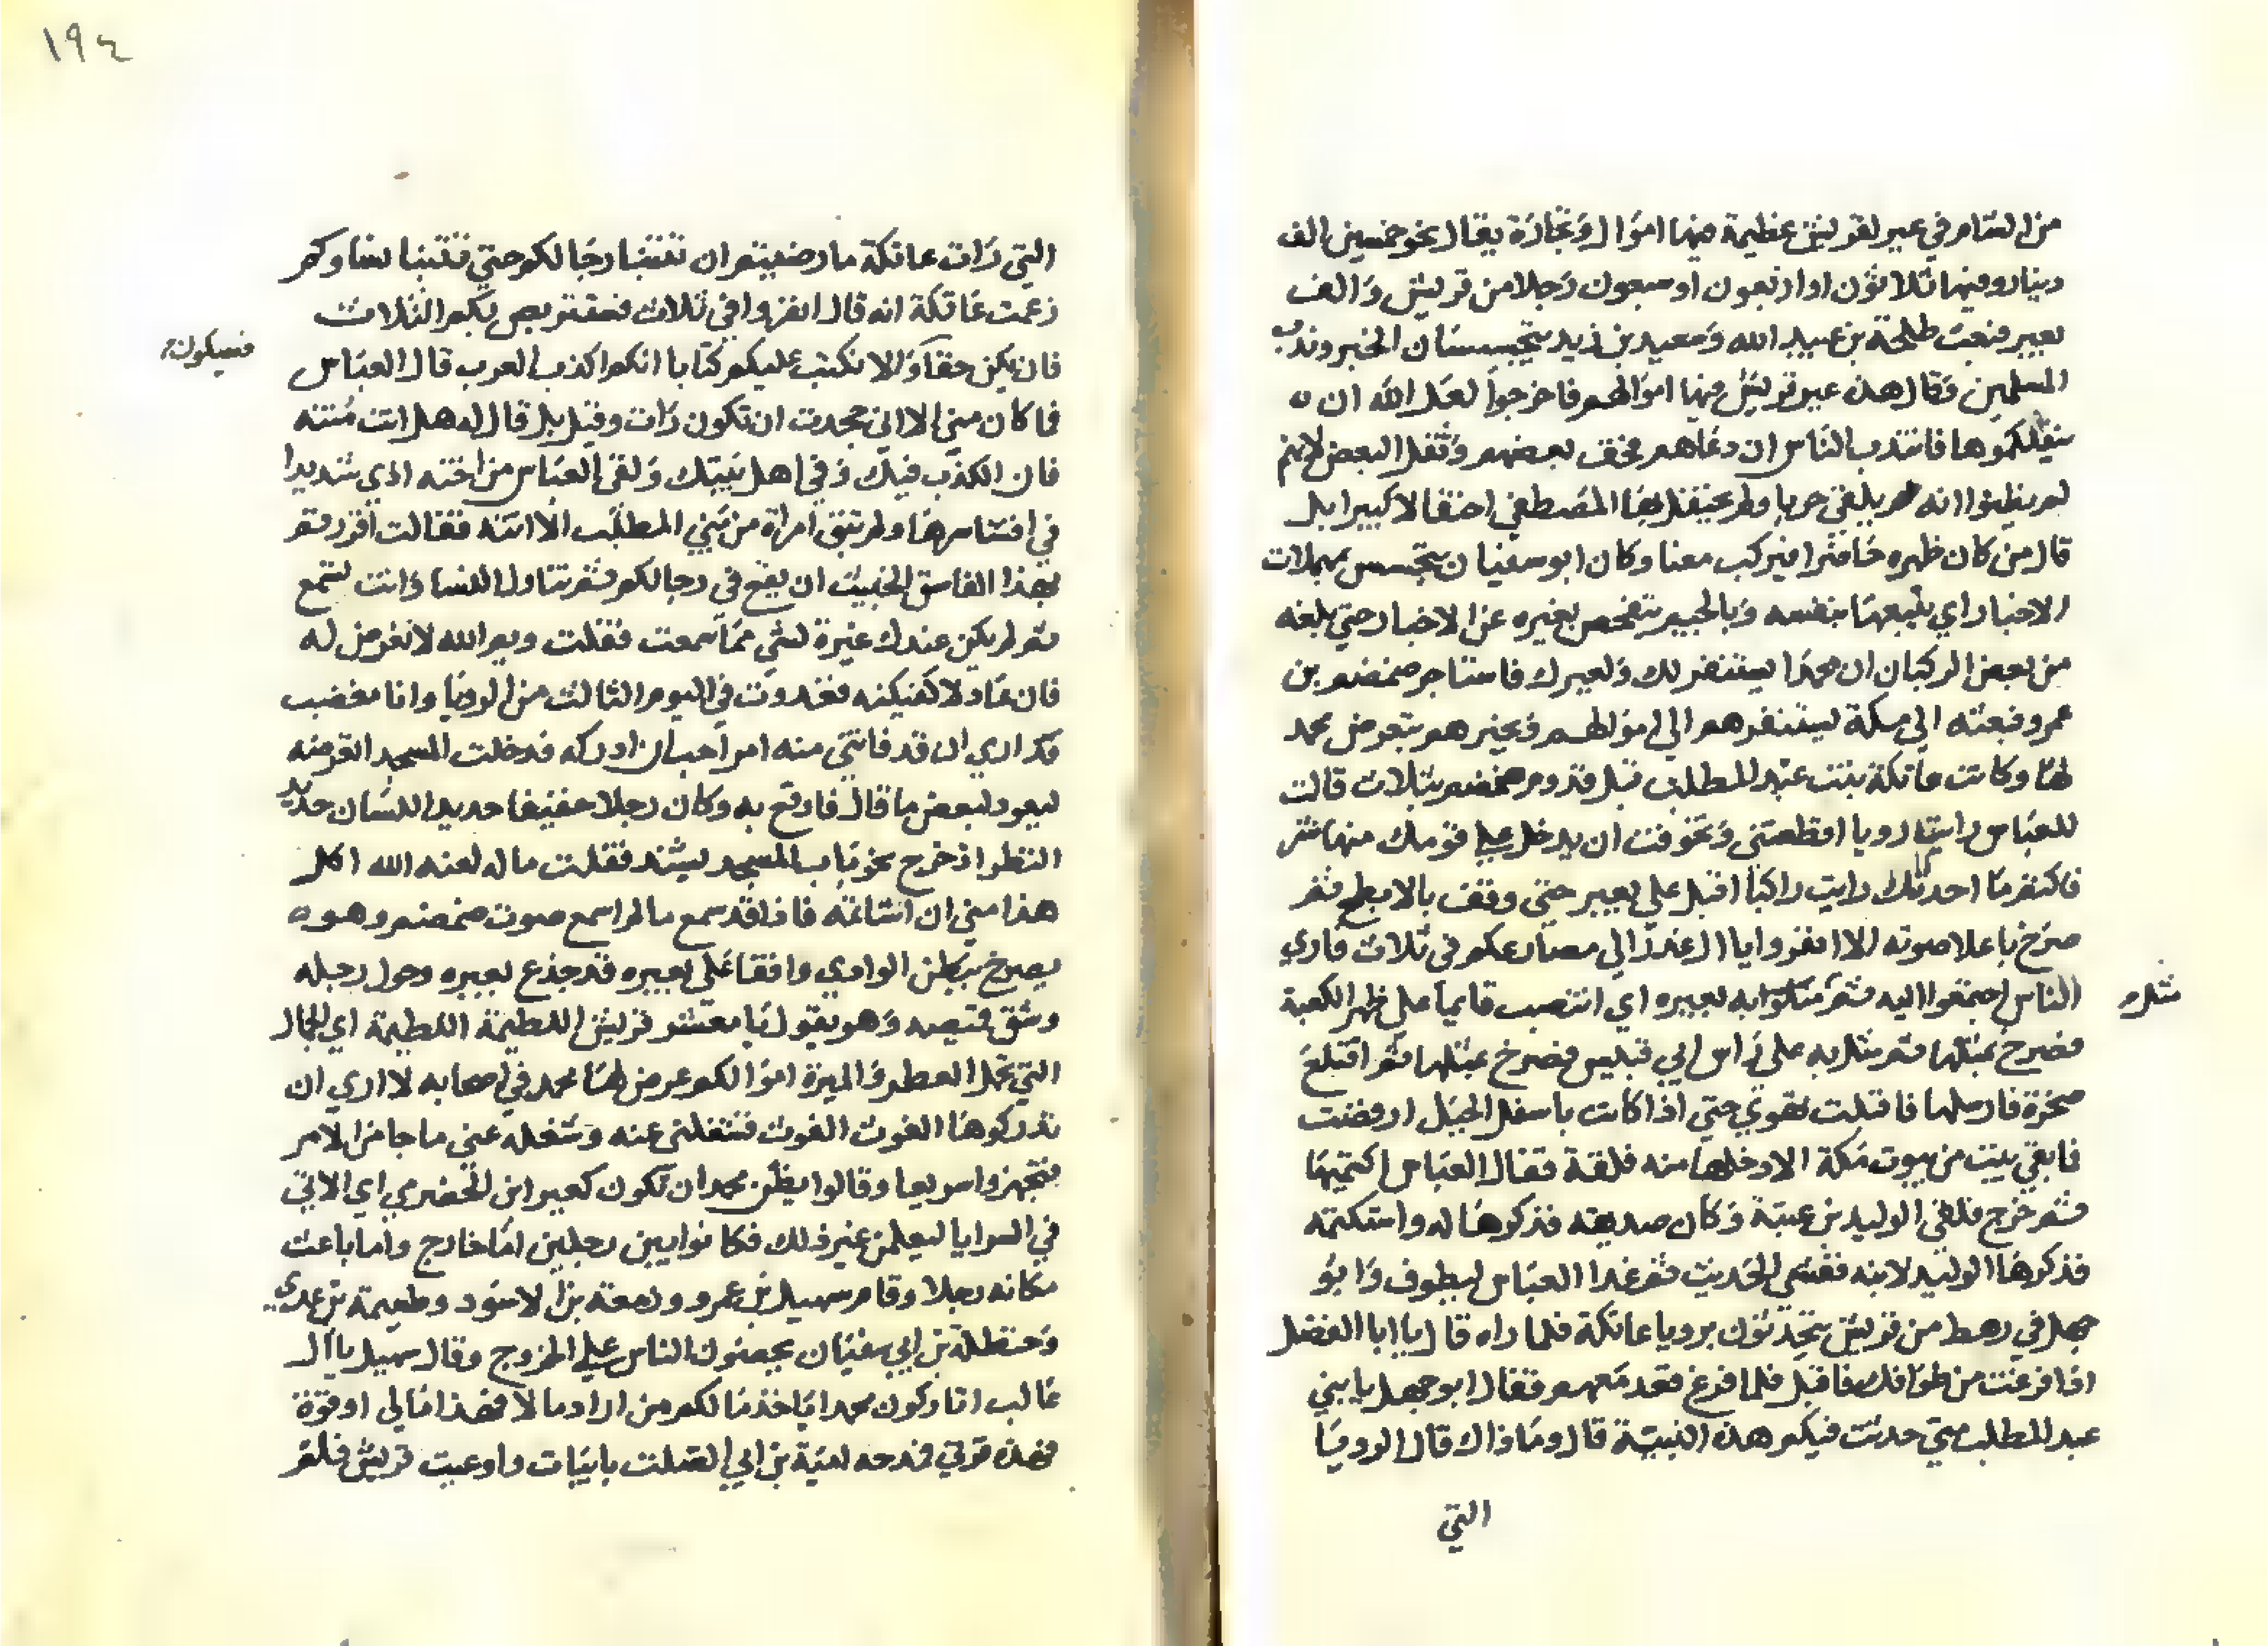 من الشام في عير لقريش عظيمة فيها اموال وتجارة يقال نحو خمسين الف
دينار وفيها ثلاثون او اربعون او سبعون رجلا من قريش والف
بعير فبعث طلحة بن عبيد الله وسعيد بن زيد يتجسسان الخبر وندب
المسلمين وقال هذه عير قريش فيها اموالهم فاخرجوا لعل الله ان
ينفلكموها فانتدب الناس ان دعاهم فخف بعضهم وثقل البعض لانهم
لم يظنوا انه يلقي حربا ولم يحتفل بها المصطفي احتفالا كبيرا بل
قال من كان ظهره حاضرا فيركب معنا وكان ابو سفيان يتجسس بمهملات
الاخبار اي يتبعها بنفسه وبالجيم يتفحص بغيره عن الاخبار حتي بلغه
من بعض الركبان ان محمدا يستنفر لك ولعيرك فاستاجر ضمضم بن
عمرو فبعثه الي مكة ليستنفرهم الي اموالهم ويخبرهم بتعرض محمد
لها وكانت عاتكة بنت عبد المطلب قبل قدوم ضمضم بثلاث قالت
للعباس رايت رويا افظعتني وتخوفت ان يدخل علي قومك منها شر
فاكتم ما احدثك رايت راكبا اقبل علي بعير حتي وقف بالابطح ثم
صرخ باعلا صوته الا انفروا يا آل غدر الي مصارعكم في ثلاث فاري
الناس اجتمعوا اليه ثم مثلوا به بعيره اي انتصب قايما علي ظهر الكعبة
مثل
فصرخ بمثلها ثم مثل به علي راس ابي قبيس فصرخ بمثلها ثم اقتلع
صخرة فارسلها فاقبلت تهوي حتي اذا كانت باسفل الجبل ارفضت
فما بقي بيت من بيوت مكة الا دخلها منه فلقة فقال العباس اكتميها
ثم خرج فلقي الوليد بن عتبة وكان صديقه فذكرها له واستكتمه
فذكرها الوليد لابنه ففشي الحديث ثم غدا العباس ليطوف وابو
جهل في رهط من قريش يتحدثون برويا عاتكة فلما راه قال يا ابا الفضل
اذا فرغت من طوافك فاقبل فلما فرغ قعد معهم فقال ابو جهل يا بني
عبد المطلب متي حدثت فيكم هذه النبية قال وما ذاك قال الرويا
التي
١٩٤
التي رات عاتكة ما رضيتم ان تتنبا رجالكم حتي تتنبا نساوكم
زعمت عاتكة انه قال انفروا في ثلاث فسنتربص بكم الثلاث
فان يكن حقا والا نكتب عليكم كتابا انكم اكذب العرب قال العباس
فسيكون
فما كان مني الا اني جحدت ان تكون رات وقيل بل قال له هل انت منته
فان الكذب فيك وفي اهل بيتك ولقي العباس من اخته اذي شديدا
في افشا سرها ولم تبق امراة من بني المطلب الا اتته فقالت اقررتم
لهذا الفاسق الخبيث ان يقع في رجالكم ثم تناول النسا وانت تسمع
ثم لم يكن عندك غيرة لشي مما سمعت فقلت وايم الله لاتعرضن له
فان عاد لاكفيكنه فغدوت في اليوم الثالث من الرويا وانا مغضب
قد اري ان قد فاتني منه امر احب ان ادركه فدخلت المسجد اتعرضه
ليعود لبعض ما قال فاوقع به وكان رجلا خفيفا حديد اللسان حديد
النظر اذ خرج نحو باب المسجد يشتد فقلت ما له لعنه الله اكل
هذا مني ان اشاتمه فاذا قد سمع ما لم اسمع صوت ضمضم وهو
يصرخ ببطن الوادي واقفا علي بعيره قد جذع بعيره وحول رحله
وشق قميصه وهو يقول يا معشر قريش اللطيمة اللطيمة اي الجمال
التي تحمل العطر والميرة اموالكم عرض لها محمد في اصحابه لا اري ان
تدركوها الغوث الغوث فشغلني عنه وشغله عني ما جا من الامر
فتجهزوا سريعا وقالوا يظن محمد ان تكون كعير ابن الحضرمي اي الاتي
في السرايا ليعلمن غير ذلك فكانوا بين رجلين اما خارج واما باعث
مكانه رجلا وقام سهيل بن عمرو وزمعة بن الاسود وطعيمة بن عدي
وحنظلة بن ابي سفيان يحضون الناس علي الخروج وقال سهيل يا آل
غالب اتاركون محمدا ياخذ مالكم من اراد مالا فهذا مالي او قوة
فهذه قوتي فمدحه امية بن ابي الصلت بابيات واوعبت قريش فلم